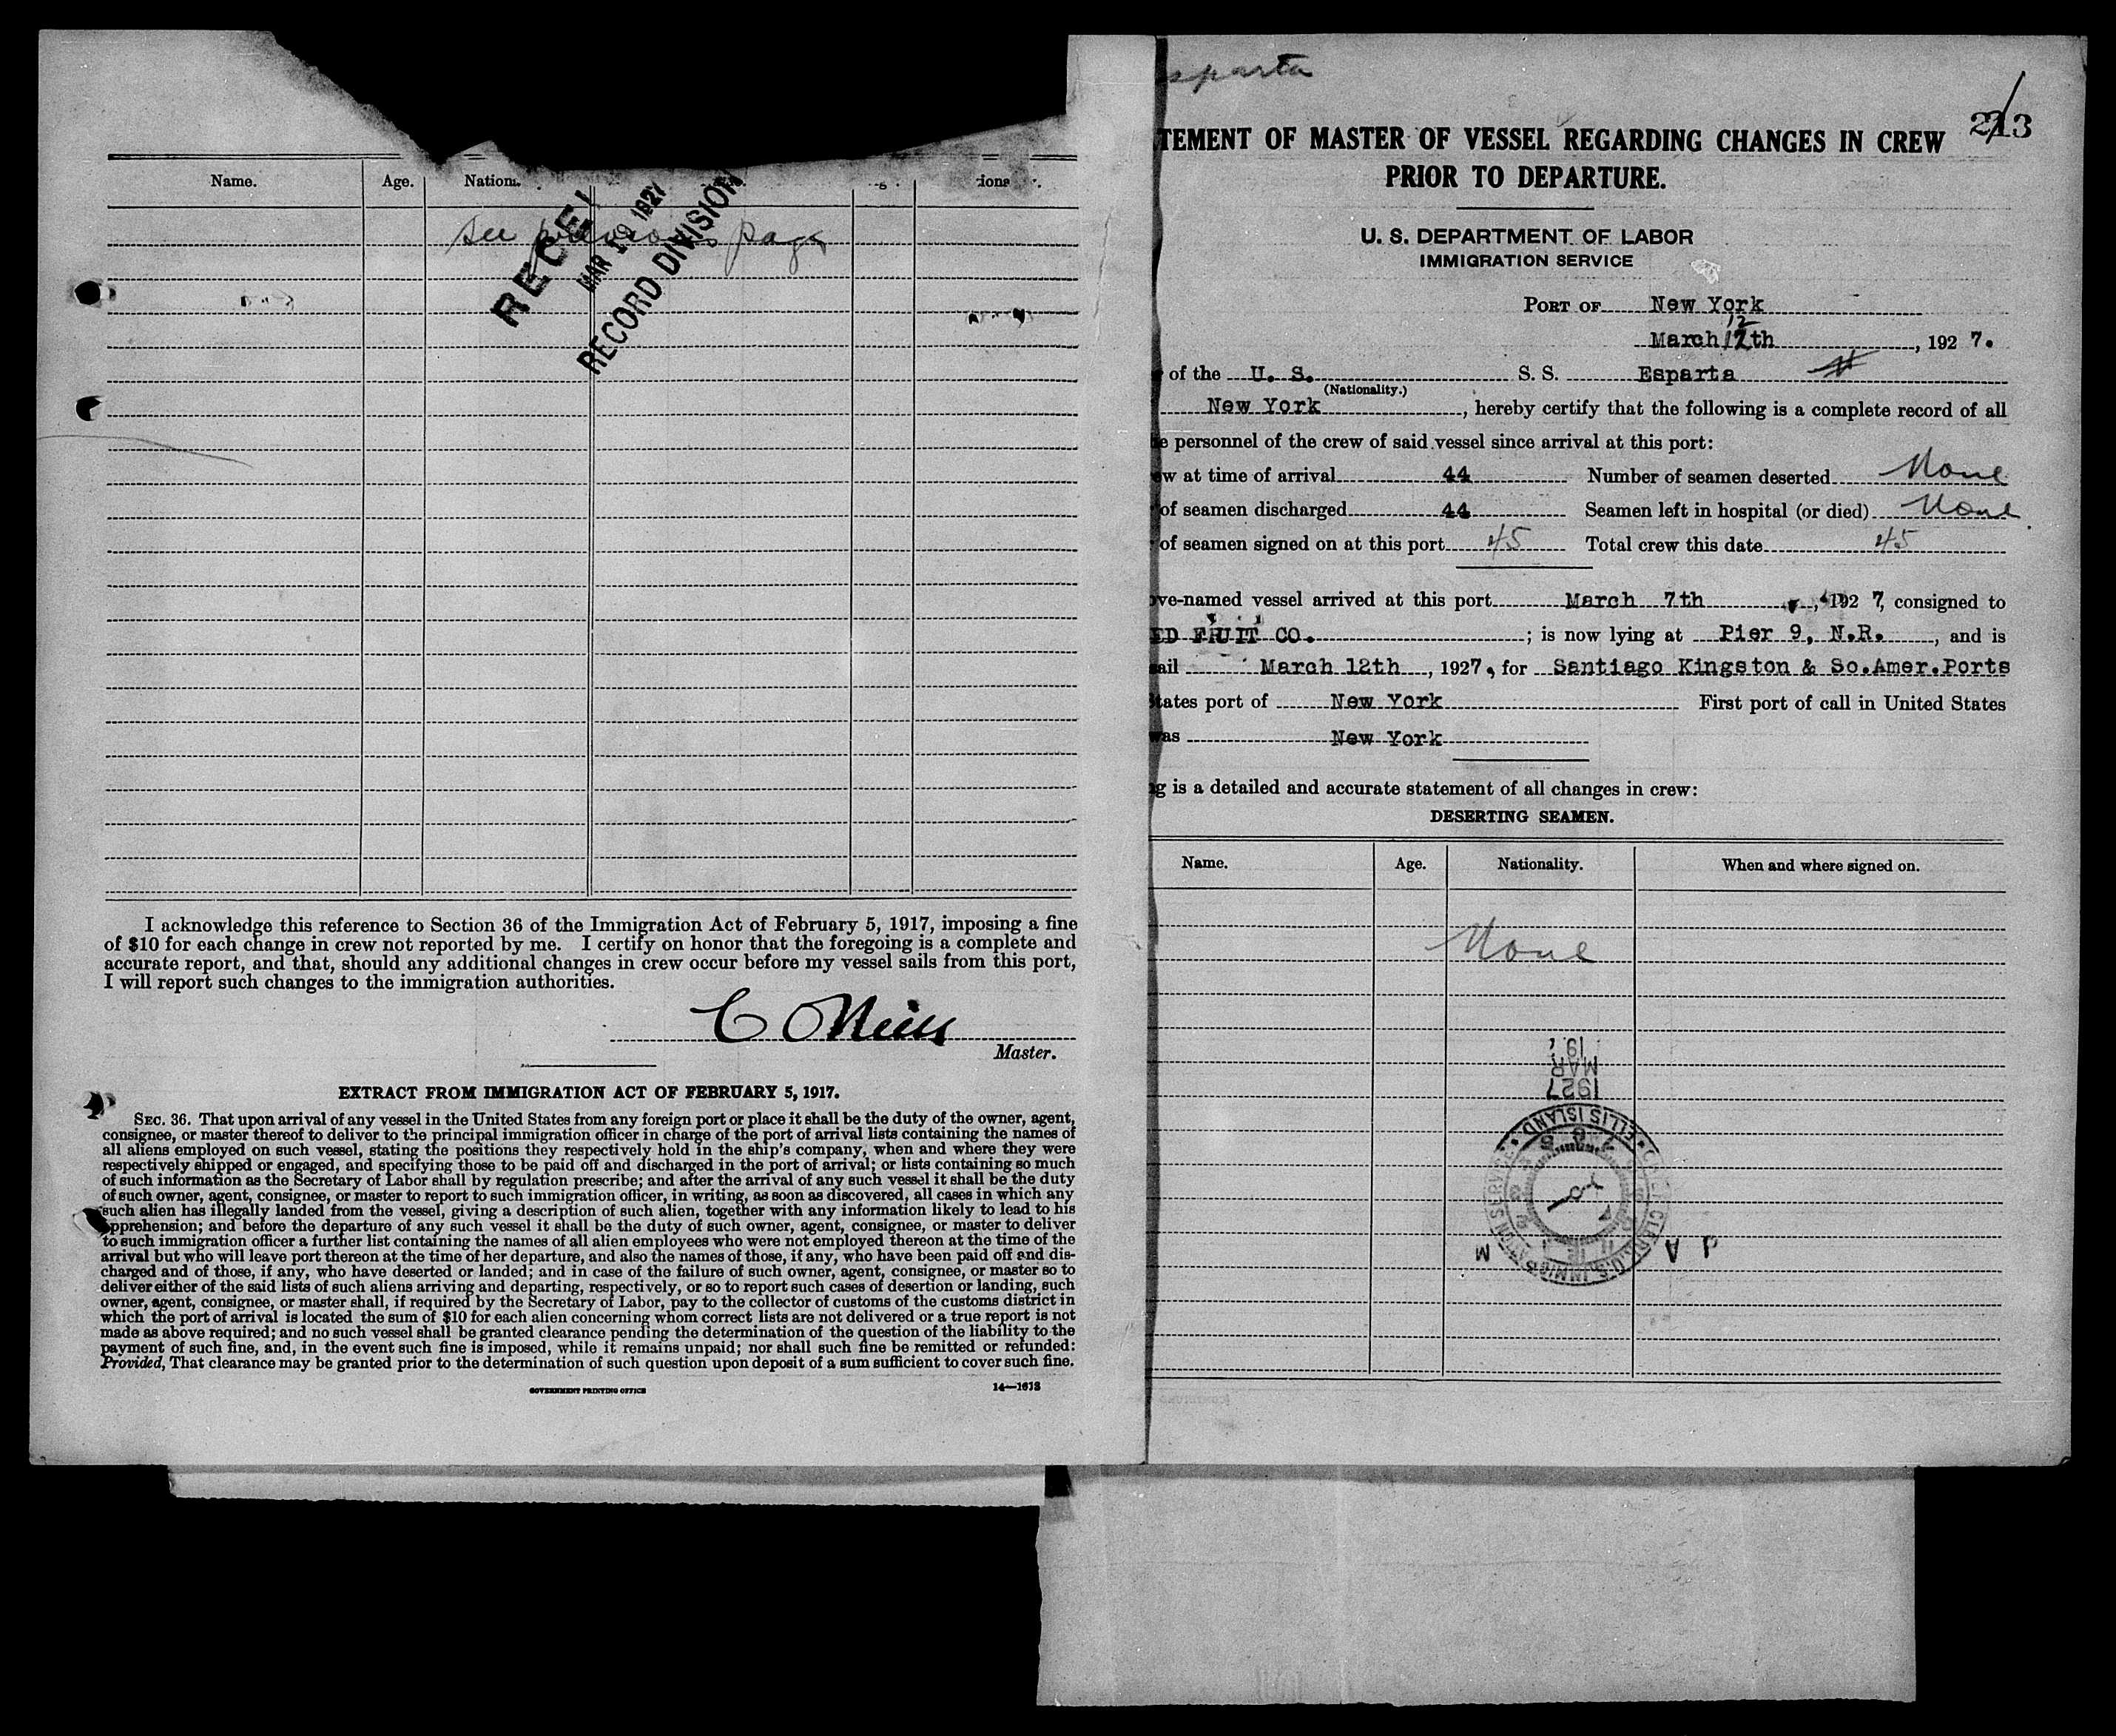 Name.
Age.
Nation
see previous page
MAR 19 1927
RECORD DIVISION
I acknowledge this reference to Section 36 of the Immigration Act of February 5, 1917, imposing a fine
of $10 for each change in crew not reported by me. I certify on honor that the foregoing is a complete and
accurate report, and that, should any additional changes in crew occur before my vessel sails from this port,
I will report such changes to the immigration authorities.
C ONeill
Master.
EXTRACT FROM IMMIGRATION ACT OF FEBRUARY 5, 1917.
SEC. 36. That upon arrival of any vessel in the United States from any foreign port or place it shall be the duty of the owner, agent,
consignee, or master thereof to deliver to the principal immigration officer in charge of the port of arrival lists containing the names of
all aliens employed on such vessel, stating the positions they respectively hold in the ship's company, when and where they were
respectively shipped or engaged, and specifying those to be paid off and discharged in the port of arrival; or lists containing so much
of such information as the Secretary of Labor shall by regulation prescribe; and after the arrival of any such vessel it shall be the duty
of such owner, agent, consignee, or master to report to such immigration officer, in writing, as soon as discovered, all cases in which any
such alien has illegally landed from the vessel, giving a description of such alien, together with any information likely to lead to his
apprehension; and before the departure of any such vessel it shall be the duty of such owner, agent, consignee, or master to deliver
to such immigration officer a further list containing the names of all alien employees who were not employed thereon at the time of the
arrival but who will leave port thereon at the time of her departure, and also the names of those, if any, who have been paid off and dis-
charged and of those, if any, who have deserted or landed; and in case of the failure of such owner, agent, consignee, or master so to
deliver either of the said lists of such aliens arriving and departing, respectively, or so to report such cases of desertion or landing, such
owner, agent, consignee, or master shall, if required by the Secretary of Labor, pay to the collector of customs of the customs district in
which the port of arrival is located the sum of $10 for each alien concerning whom correct lists are not delivered or a true report is not
made as above required; and no such vessel shall be granted clearance pending the determination of the question of the liability to the
payment of such fine, and, in the event such fine is imposed, while it remains unpaid; nor shall such fine be remitted or refunded:
Provided, That clearance may be granted prior to the determination of such question upon deposit of a sum sufficient to cover such fine.
GOVERNMENT PRINTING OFFICE
14—1613
sparta
TEMENT OF MASTER OF VESSEL REGARDING CHANGES IN CREW
PRIOR TO DEPARTURE.
U. S. DEPARTMENT OF LABOR
IMMIGRATION SERVICE
PORT OF New York
March 12th, 1927.
of the U. S. S. S. Esparta
(Nationality.)
New York, hereby certify that the following is a complete record of all
e personnel of the crew of said vessel since arrival at this port:
ew at time of arrival 44 Number of seamen deserted None
of seamen discharged 44 Seamen left in hospital (or died) None
of seamen signed on at this port 45 Total crew this date 45
ove-named vessel arrived at this port March 7th, 1927, consigned to
ED FRUIT CO. ; is now lying at Pier 9, N.R., and is
ail March 12th, 1927, for Santiago Kingston & So.Amer.Ports
tates port of New York First port of call in United States
was New York
g is a detailed and accurate statement of all changes in crew:
DESERTING SEAMEN.
Name. Age. Nationality. When and where signed on.
None
1927
MAR
19
ELLIS ISLAND